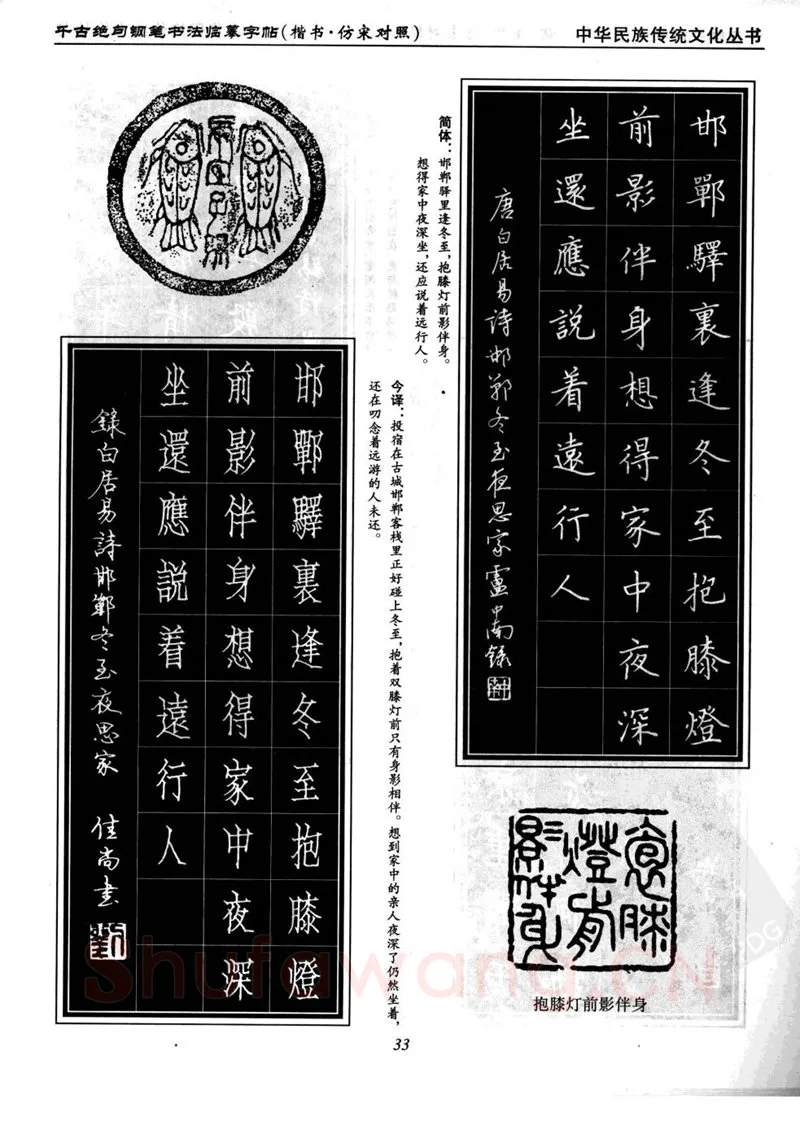 千古绝句钢笔书法临摹字帖(楷书·仿宋对照)
中华民族传统文化丛书
邯鄲驛裏逢冬至抱膝燈
前影伴身想得家中夜深
坐還應説着遠行人
唐白居易詩邯鄲冬至夜思家盧中南錄
简体：邯郸驿里逢冬至，抱膝灯前影伴身。
想得家中夜深坐，还应说着远行人。
今译：投宿在古城邯郸客栈里正好碰上冬至，抱着双膝灯前只有身影相伴。想到家中的亲人夜深了仍然坐着，
还在叨念着远游的人未还。
邯鄲驛裏逢冬至抱膝燈
前影伴身想得家中夜深
坐還應説着遠行人
錄白居易詩邯鄲冬至夜思家 佳尚書
抱膝
燈前
影伴身
抱膝灯前影伴身
33
Shufawang.CN